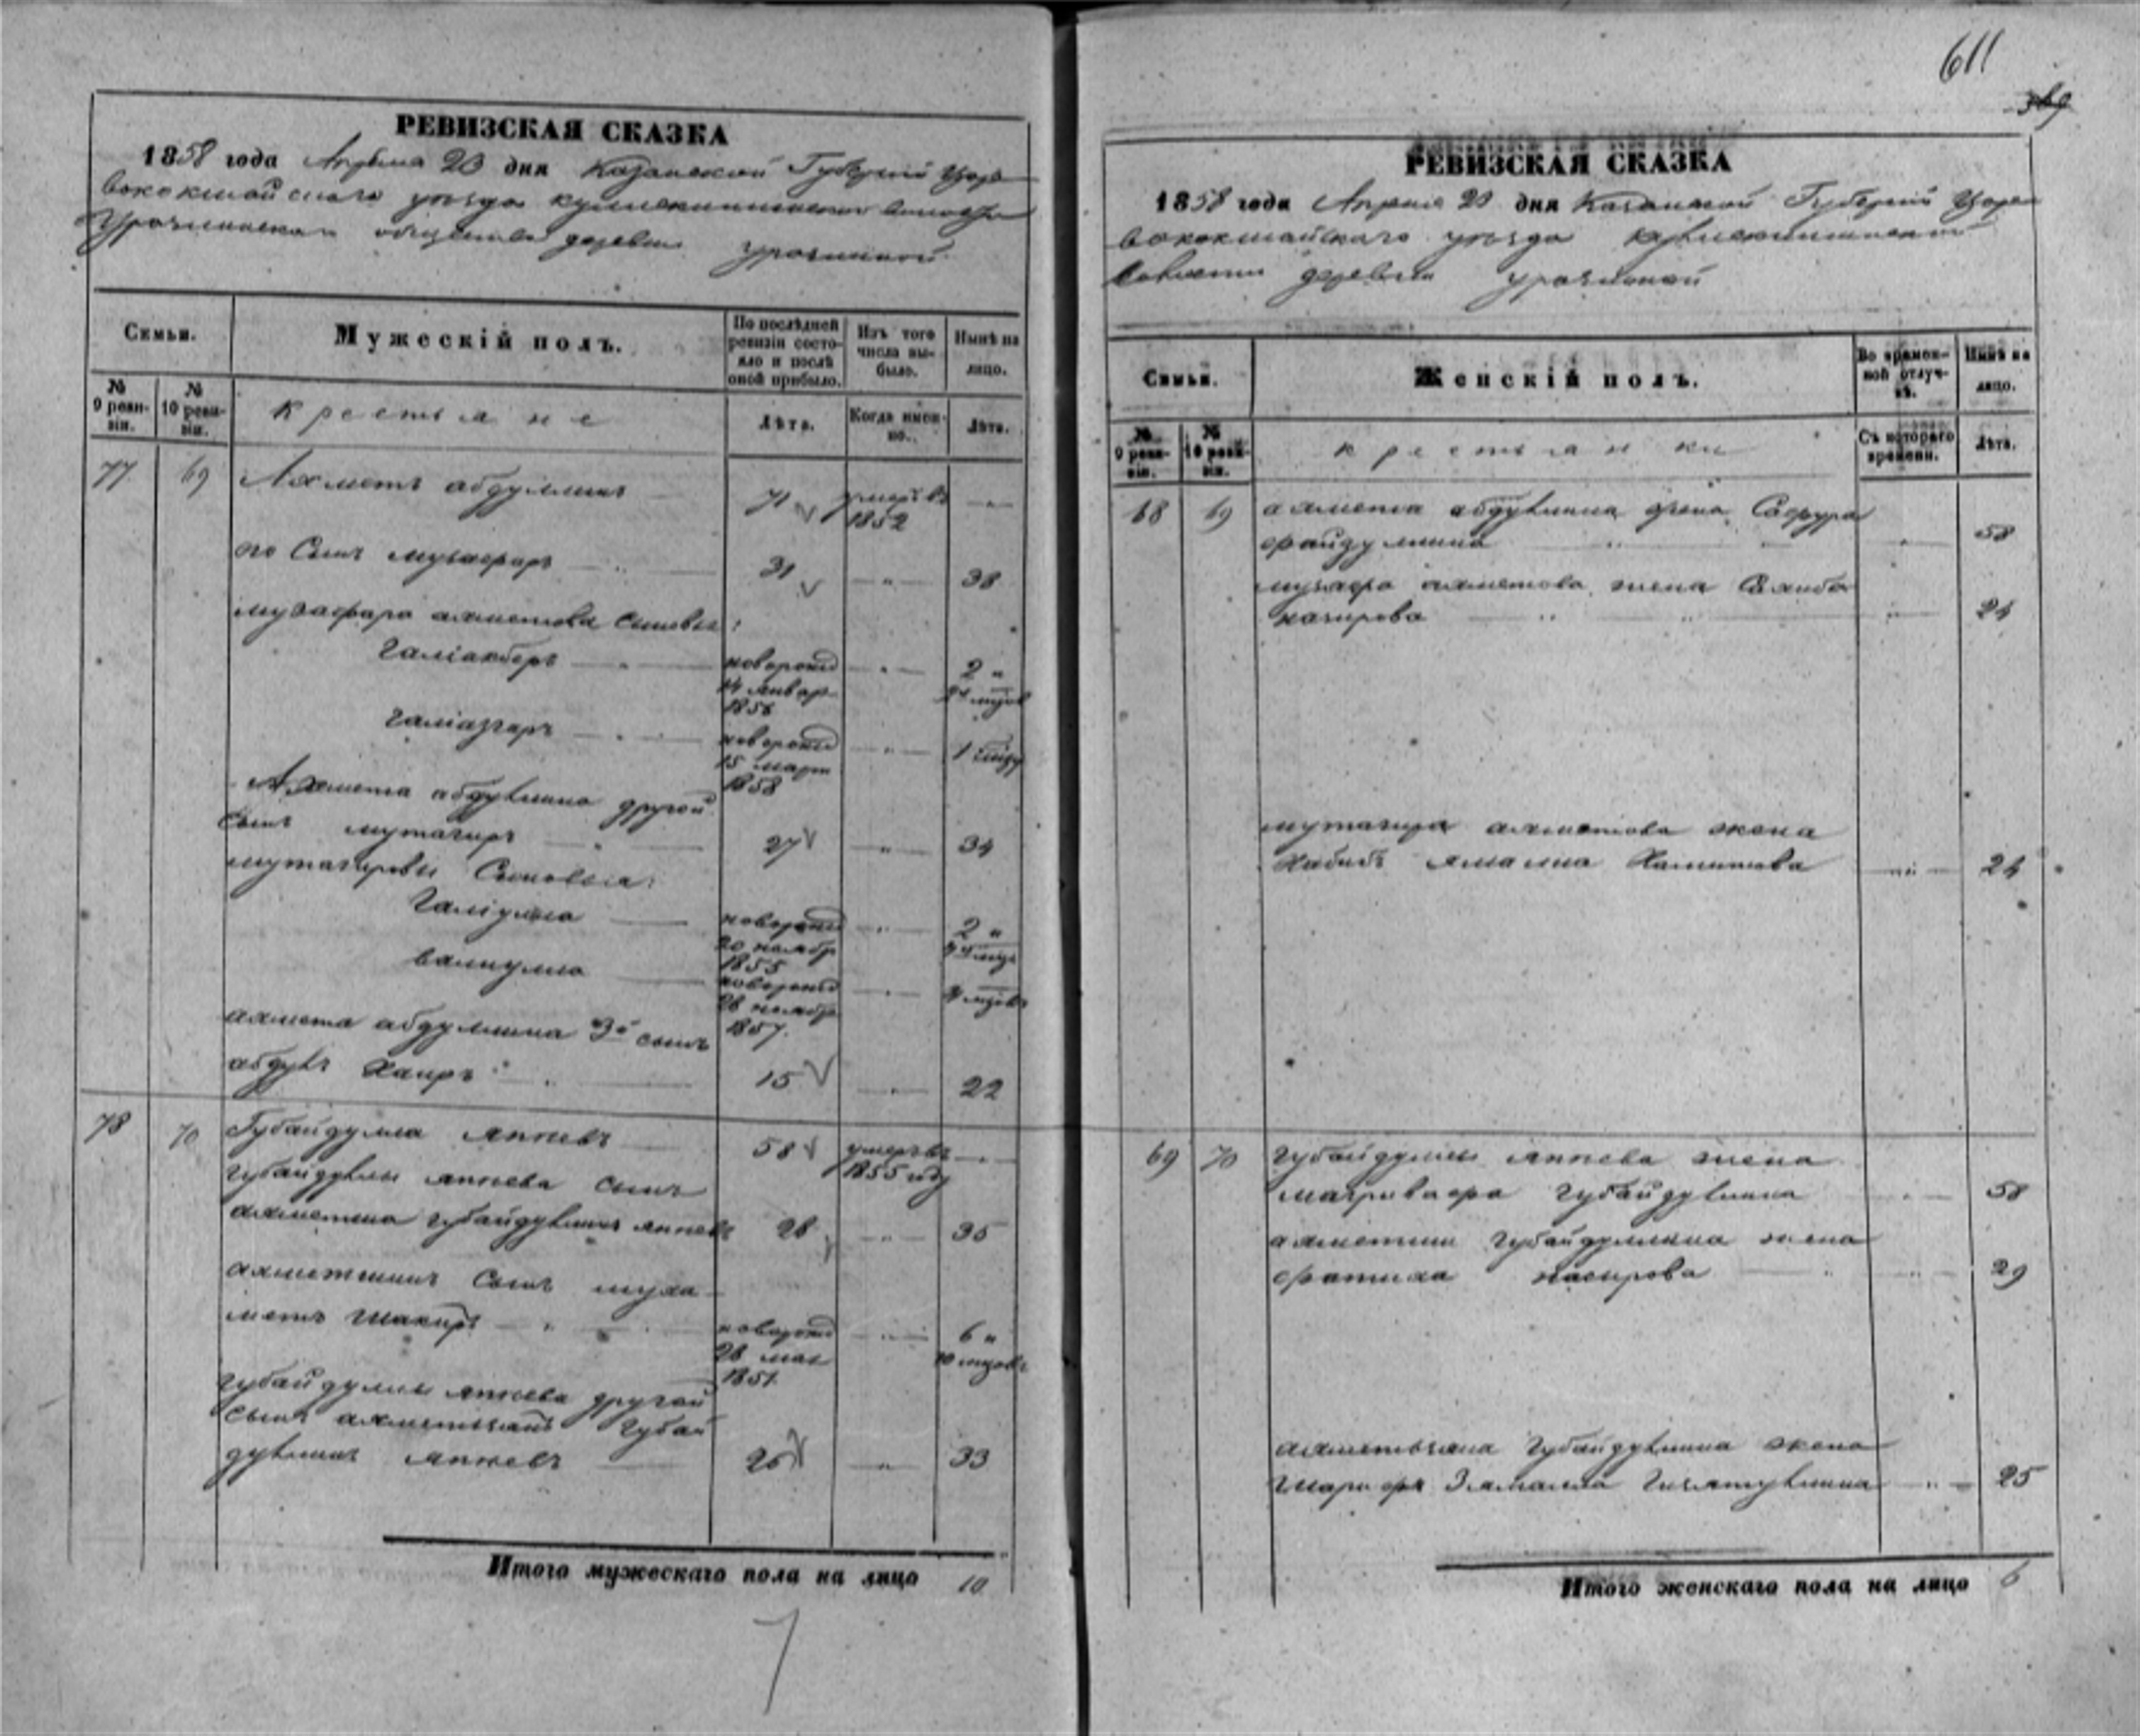 РЕВИЗСКАЯ СКАЗКА
1858 года Апреля 23 дня Казанской Губерніи Царе
вококшайскаго уезда волости
общества деревни
Семьи.
Мужескій полъ.
По послѣдней ревизіи состояло и послѣ оной прибыло.
Изъ того числа выбыло.
Нынѣ на лицо.
№ 9 ревизіи.
№ 10 ревизіи.
крестьяне
Лѣта.
Когда именно.
Лѣта.
77 69 Ахметъ абдуллинъ 71 умеръ въ 1852
его Сынъ музафаръ 31 " 38
музафара ахметова сыновья:
Галіакберъ новорожд 14 январ 1856 " 2 "
Галіазгаръ новорожд 15 март 1858 " 1
Ахмета абдулина другой
сынъ мутагиръ 27 " 34
Сыновья:
Галіулла новорожд 20 ноябр 1855 " 2 "
валиулла новорожд 28 ноябр 1857
ахмета абдуллина 3й сынъ
абдулъ Хаиръ 15 " 22
78 70 Губайдулла аппевъ 58 умеръ въ 1855 году
губайдулы аппева сынъ
губайдулинъ аппевъ 28 " 35
Сынъ муха
метъ шакиръ новорожд 28 мая 1851 " 6 "
губайдуллы аппева другой
сынъ ахметьянъ Губай
дулинъ аппевъ 26 " 33
Итого мужескаго пола на лицо 10
7
611
369
РЕВИЗСКАЯ СКАЗКА
1858 года Апреля 23 дня Казанской Губерніи Царе
вококшайскаго уезда
волости деревни
Семьи.
Женскій полъ.
Во временной отлучкѣ.
Нынѣ на лицо.
№ 9 ревизіи.
№ 10 ревизіи.
крестьянки
Съ котораго времени.
Лѣта.
68 69 ахмета абдулина жена Сафура
файзуллина " 58
музафара ахметова жена Сахиба
назирова " 24
мутагира ахметова жена
Хабибъ ямалиа " 24
69 70 губайдуллы аппева жена
губайдулина " 58
губайдуллина жена
фатиха насирова " 29
ахметьяна Губайдулина жена
Шарифъ Зямалиа " 25
Итого женскаго пола на лицо 6